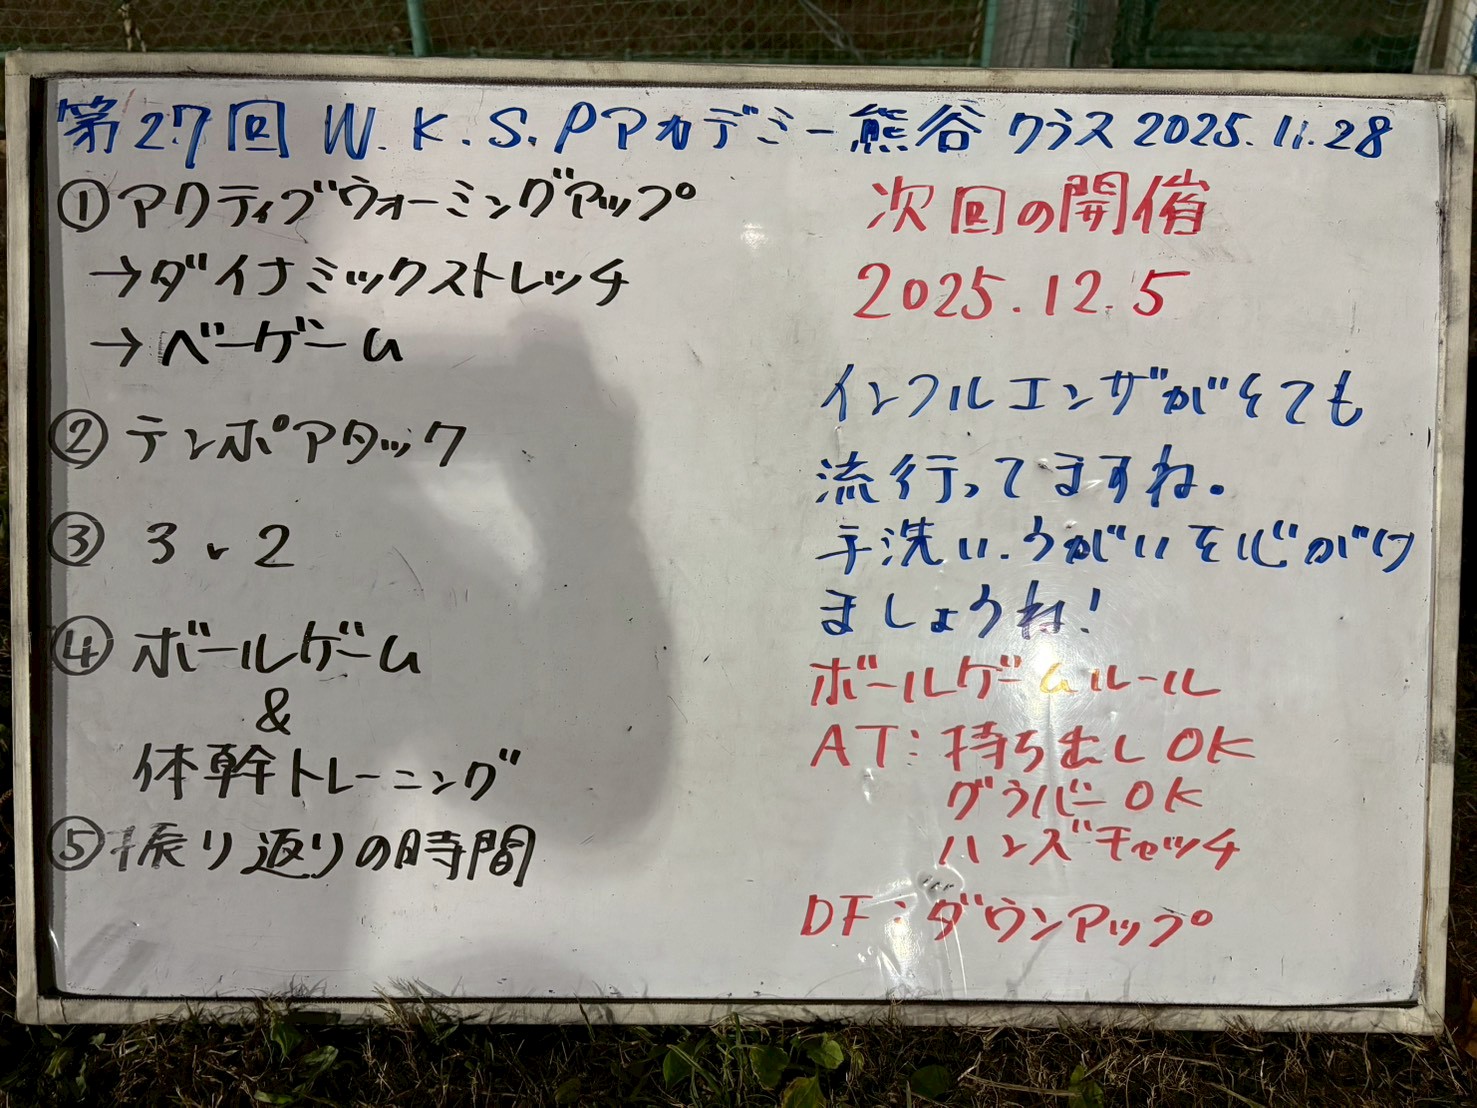 第27回 W.K.S.Pアカデミー熊谷クラス2025.11.28
①アクティブウォーミングアップ
→ダイナミックストレッチ
→ベーゲーム
②テンポアタック
③3v2
④ボールゲーム
&
体幹トレーニング
⑤振り返りの時間
次回の開催
2025.12.5
インフルエンザがとても
流行ってますね。
手洗い.うがいを心がけ
ましょうね!
ボールゲームルール
AT:持ち出しOK
グラバーOK
ハンズキャッチ
DF:ダウンアップ